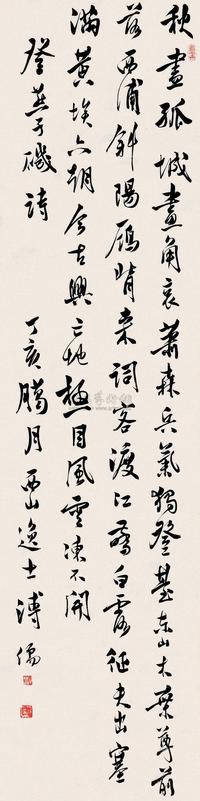 秋盡孤城畫角哀蕭森兵氣獨登臺東山木葉尊前
落西浦斜陽鴈背來詞客渡江白露征夫出塞
滿黃埃六朝今古興亡地極目風雲凍不開
登燕子磯詩 丁亥臘月西山逸士溥儒